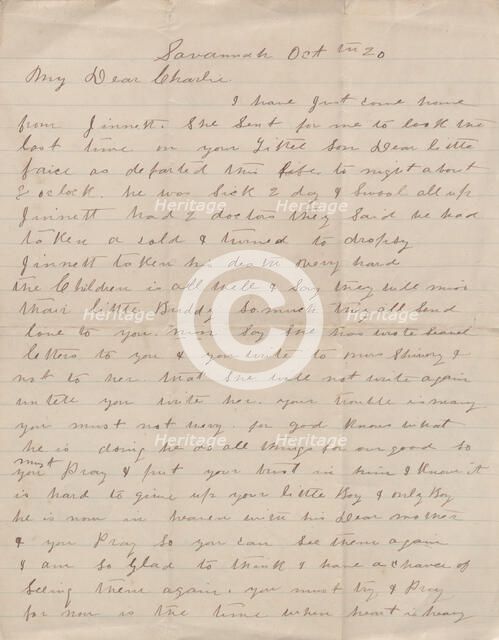 Savannah Oct th 20
My Dear Charlie
I have Just come home
from Jinnett. She Sent for me to look the
last time on your Littel Son Dear little
faice as departed this Life to night about
2 oclock. he was Sick 2 day & Swool all up
Jinnett had 2 doctors they Said he had
taken a cold & turned to dropsy
Jinnett taken his death very hard
the Children is all well & Say they will miss
thair little Buddy So much they all Send
love to you. Miss Say She has wrote Seaval
letters to you & you write to mrs &
not to her. that She will not write again
untell you write her. your trouble is many
you must not wery. for god knows what
he is doing he do all things for our good So
you must Pray & put your trust in him I know it
is hard to give up your little Boy & only Boy
he is now in heaven with his Dear mother
& you Pray So you can See them again
I am So Glad to think I have a chance of
Seeing them again. you must try & Pray
for now is the time when heart is heavy
Heritage
Heritage
Heritage
Heritage
Heritage
Heritage
Heritage
Heritage
C